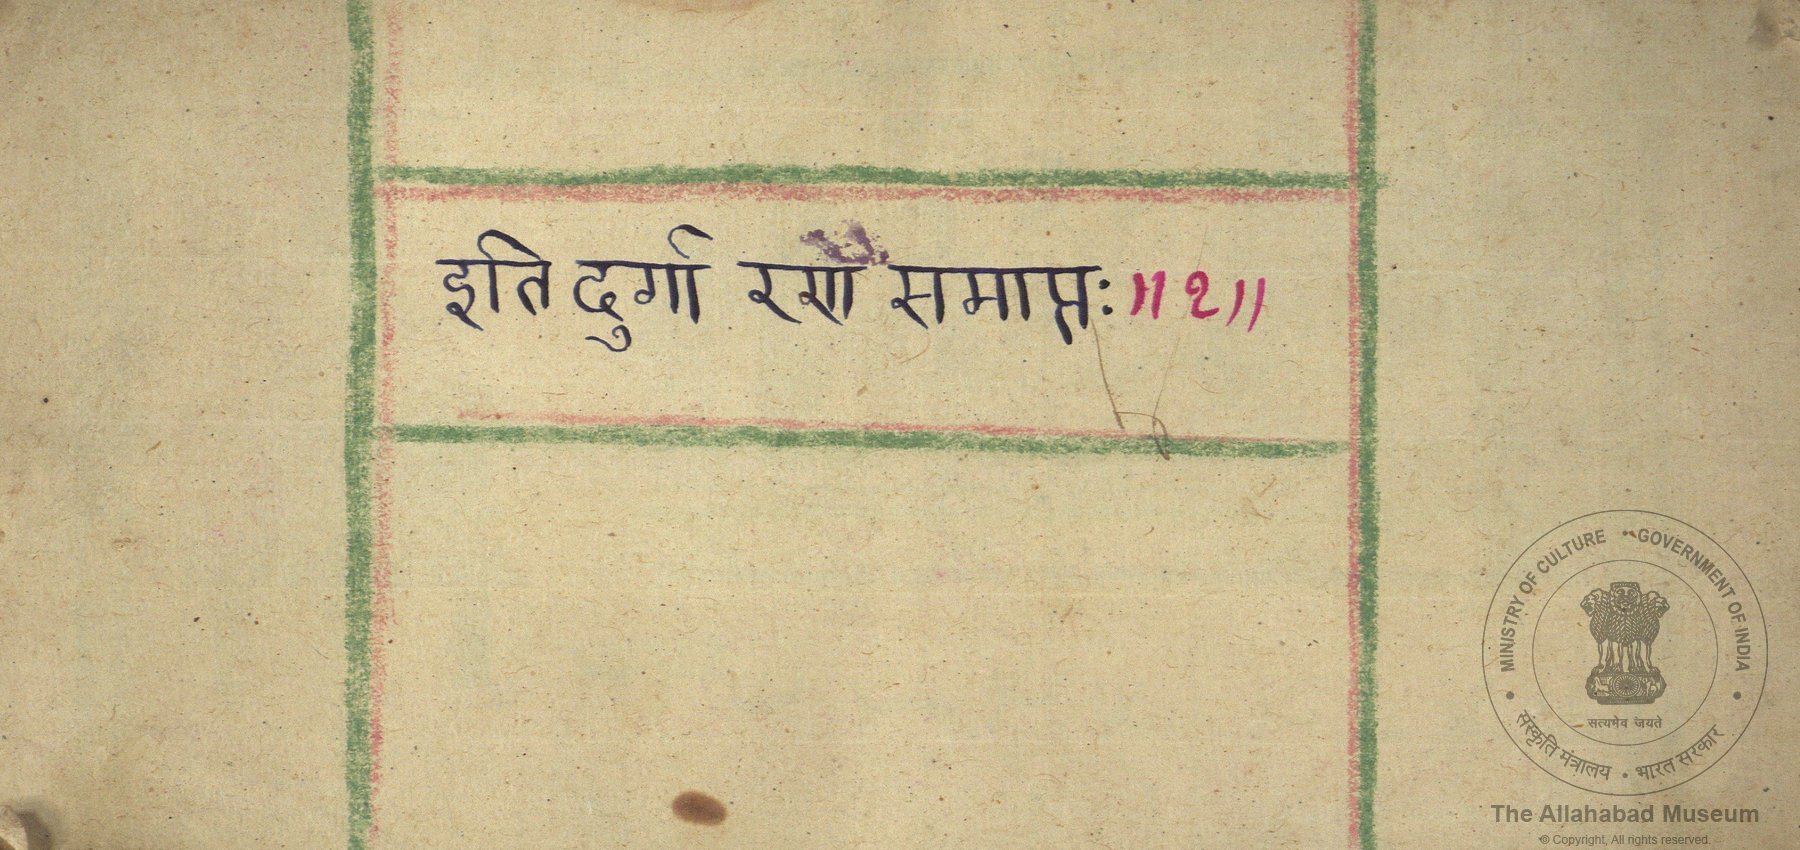 इति दुर्गा रण समाप्तः॥१॥
MINISTRY OF CULTURE • GOVERNMENT OF INDIA
सत्यमेव जयते
संस्कृति मंत्रालय • भारत सरकार
The Allahabad Museum
© Copyright, All rights reserved.